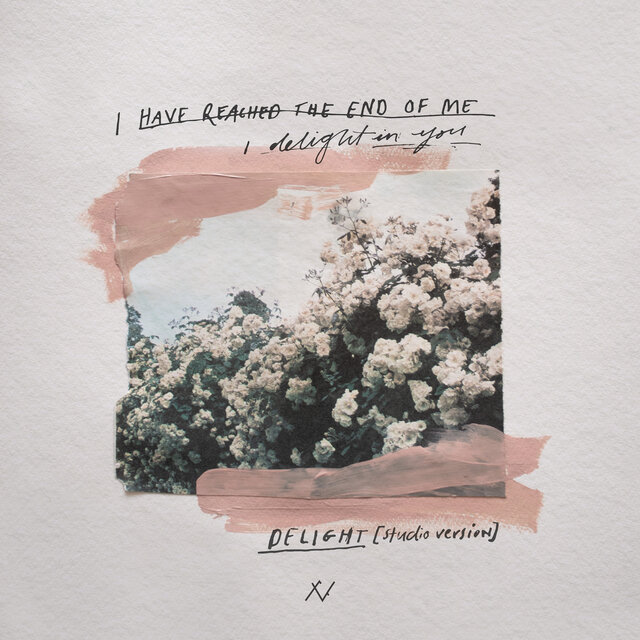 I HAVE REACHED THE END OF ME
I delight in you
DELIGHT [studio version]
XV